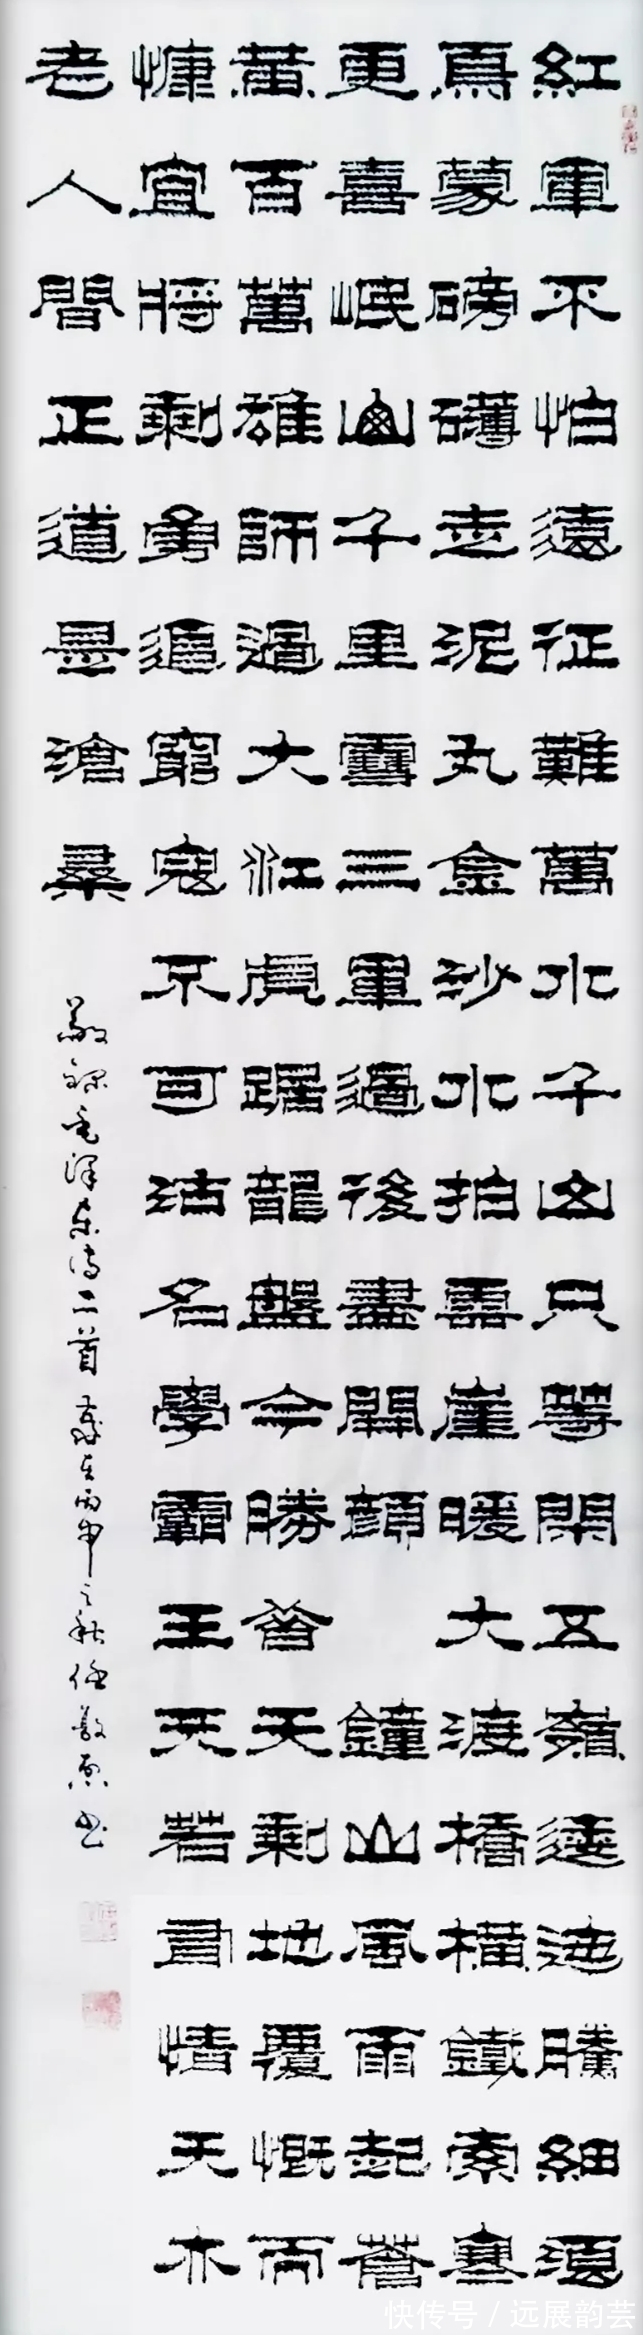 紅軍不怕遠征難萬水千山只等閑五嶺逶迤騰細浪
烏蒙磅礴走泥丸金沙水拍雲崖暖大渡橋橫鐵索寒
更喜岷山千里雪三軍過後盡開顏 鐘山風雨起蒼
黃百萬雄師過大江虎踞龍盤今勝昔天翻地覆慨而
慷宜將剩勇追窮寇不可沽名學霸王天若有情天亦
老人間正道是滄桑
敬錄毛澤東詩二首 歲在丙申之秋任書
快传号/远展韵芸